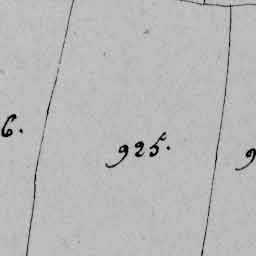 6. 925. 9